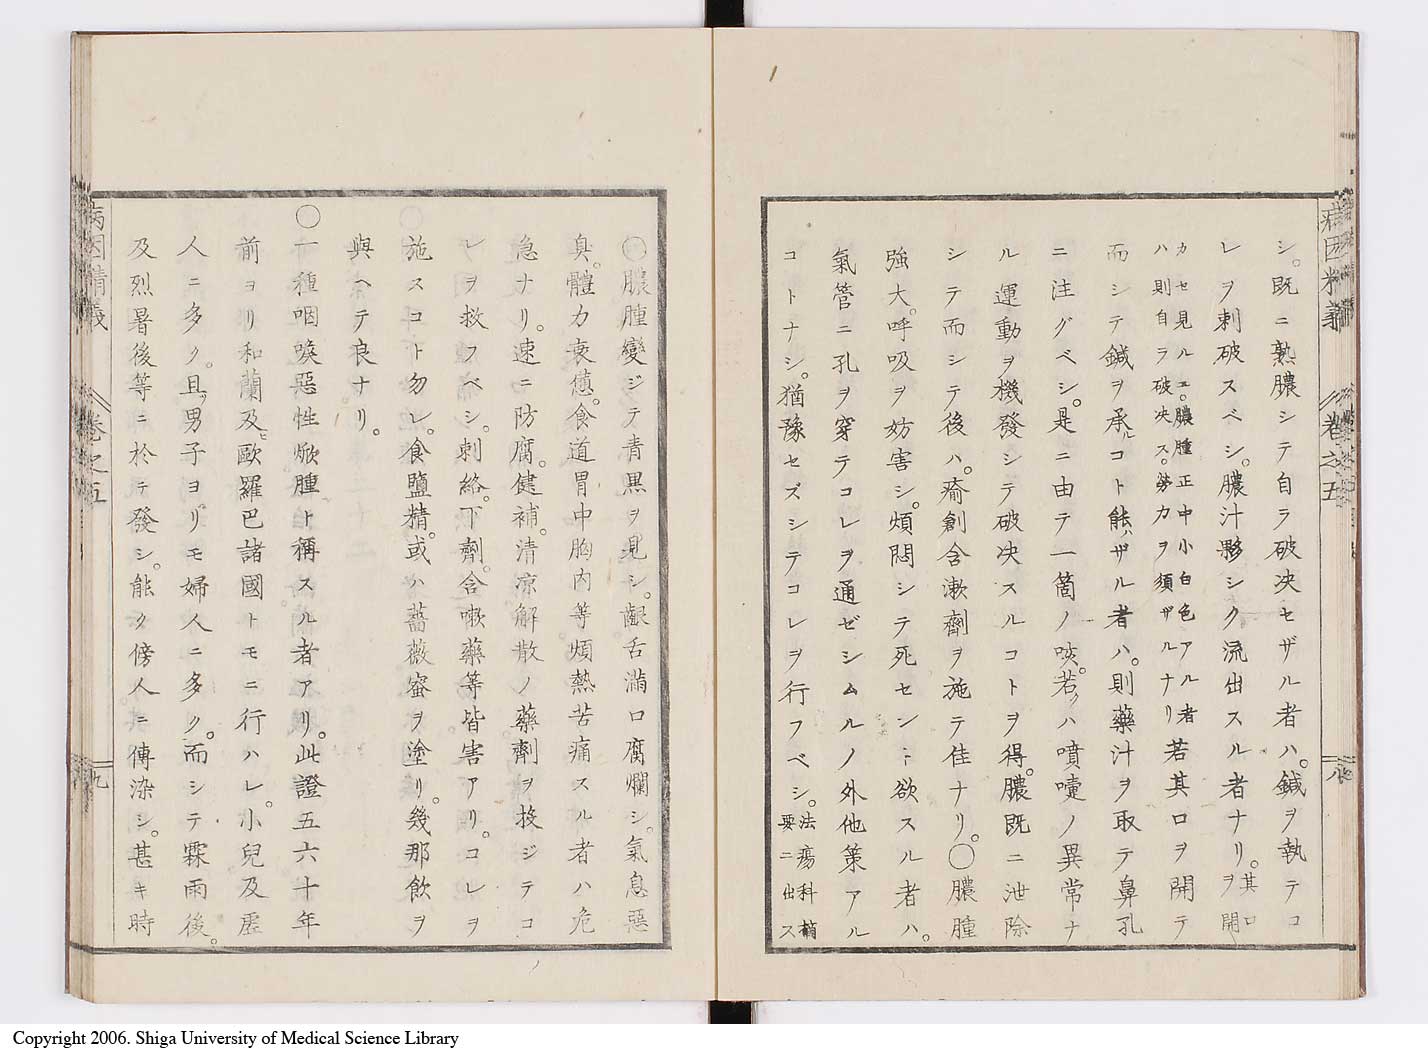 シ。既ニ熟膿シテ自ラ破决セザル者ハ。鍼ヲ執テコ
レヲ刺破スベシ。膿汁夥シク流出スル者ナリ。其口ヲ開
カセ見ルニ。膿腫正中小白色アル者ハ則自ラ破决ス。勞力ヲ須ザルナリ若其口ヲ開テ
而シテ鍼ヲ承ルコト能ハザル者ハ。則藥汁ヲ取テ鼻孔
ニ注グベシ。是ニ由テ一箇ノ咳。若クハ噴嚔ノ異常ナ
ル運動ヲ機發シテ破决スルコトヲ得。膿既ニ泄除
シテ而シテ後ハ。瘉創含漱劑ヲ施テ佳ナリ。〇膿腫
強大。呼吸ヲ妨害シ。煩悶シテ死セント欲スル者ハ。
氣管ニ孔ヲ穿テコレヲ通ゼシムルノ外他策アル
コトナシ。猶豫セズシテコレヲ行フベシ。法瘍科精要ニ出ス
病因精義
卷之五
八
〇膿腫變ジテ青黒ヲ見シ。齦舌滿口腐爛シ。氣息惡
臭。體力衰憊。食道胃中胸内等煩熱苦痛スル者ハ危
急ナリ。速ニ防腐。健補。清凉解散ノ藥劑ヲ投ジテコ
レヲ救フベシ。刺絡。下劑。含嗽藥等皆害アリ。コレヲ
施スコト勿レ。食鹽精。或ハ薔薇蜜ヲ塗リ。幾那飲ヲ
與ヘテ良ナリ。
〇一種咽喉惡性焮腫ト稱スル者アリ。此證五六十年
前ヨリ和蘭及ビ歐羅巴諸國トモニ行ハレ。小兒及壓
人ニ多ク。且ツ男子ヨリモ婦人ニ多ク。而シテ霖雨後。
及烈暑後等ニ於テ發シ。能ク傍人ニ傳染シ。甚キ時
病因精義
卷之五
九
Copyright 2006. Shiga University of Medical Science Library